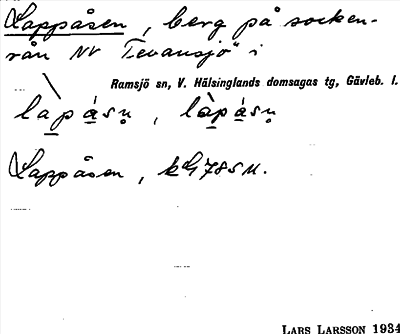 Lappåsen, berg på socken-
rån NV Tevansjö i
Ramsjö sn, V. Hälsinglands domsagas tg, Gävleb. l.
làpåsṇ, làpåsṇ
Lappåsen, kG785M.
LARS LARSSON 1934